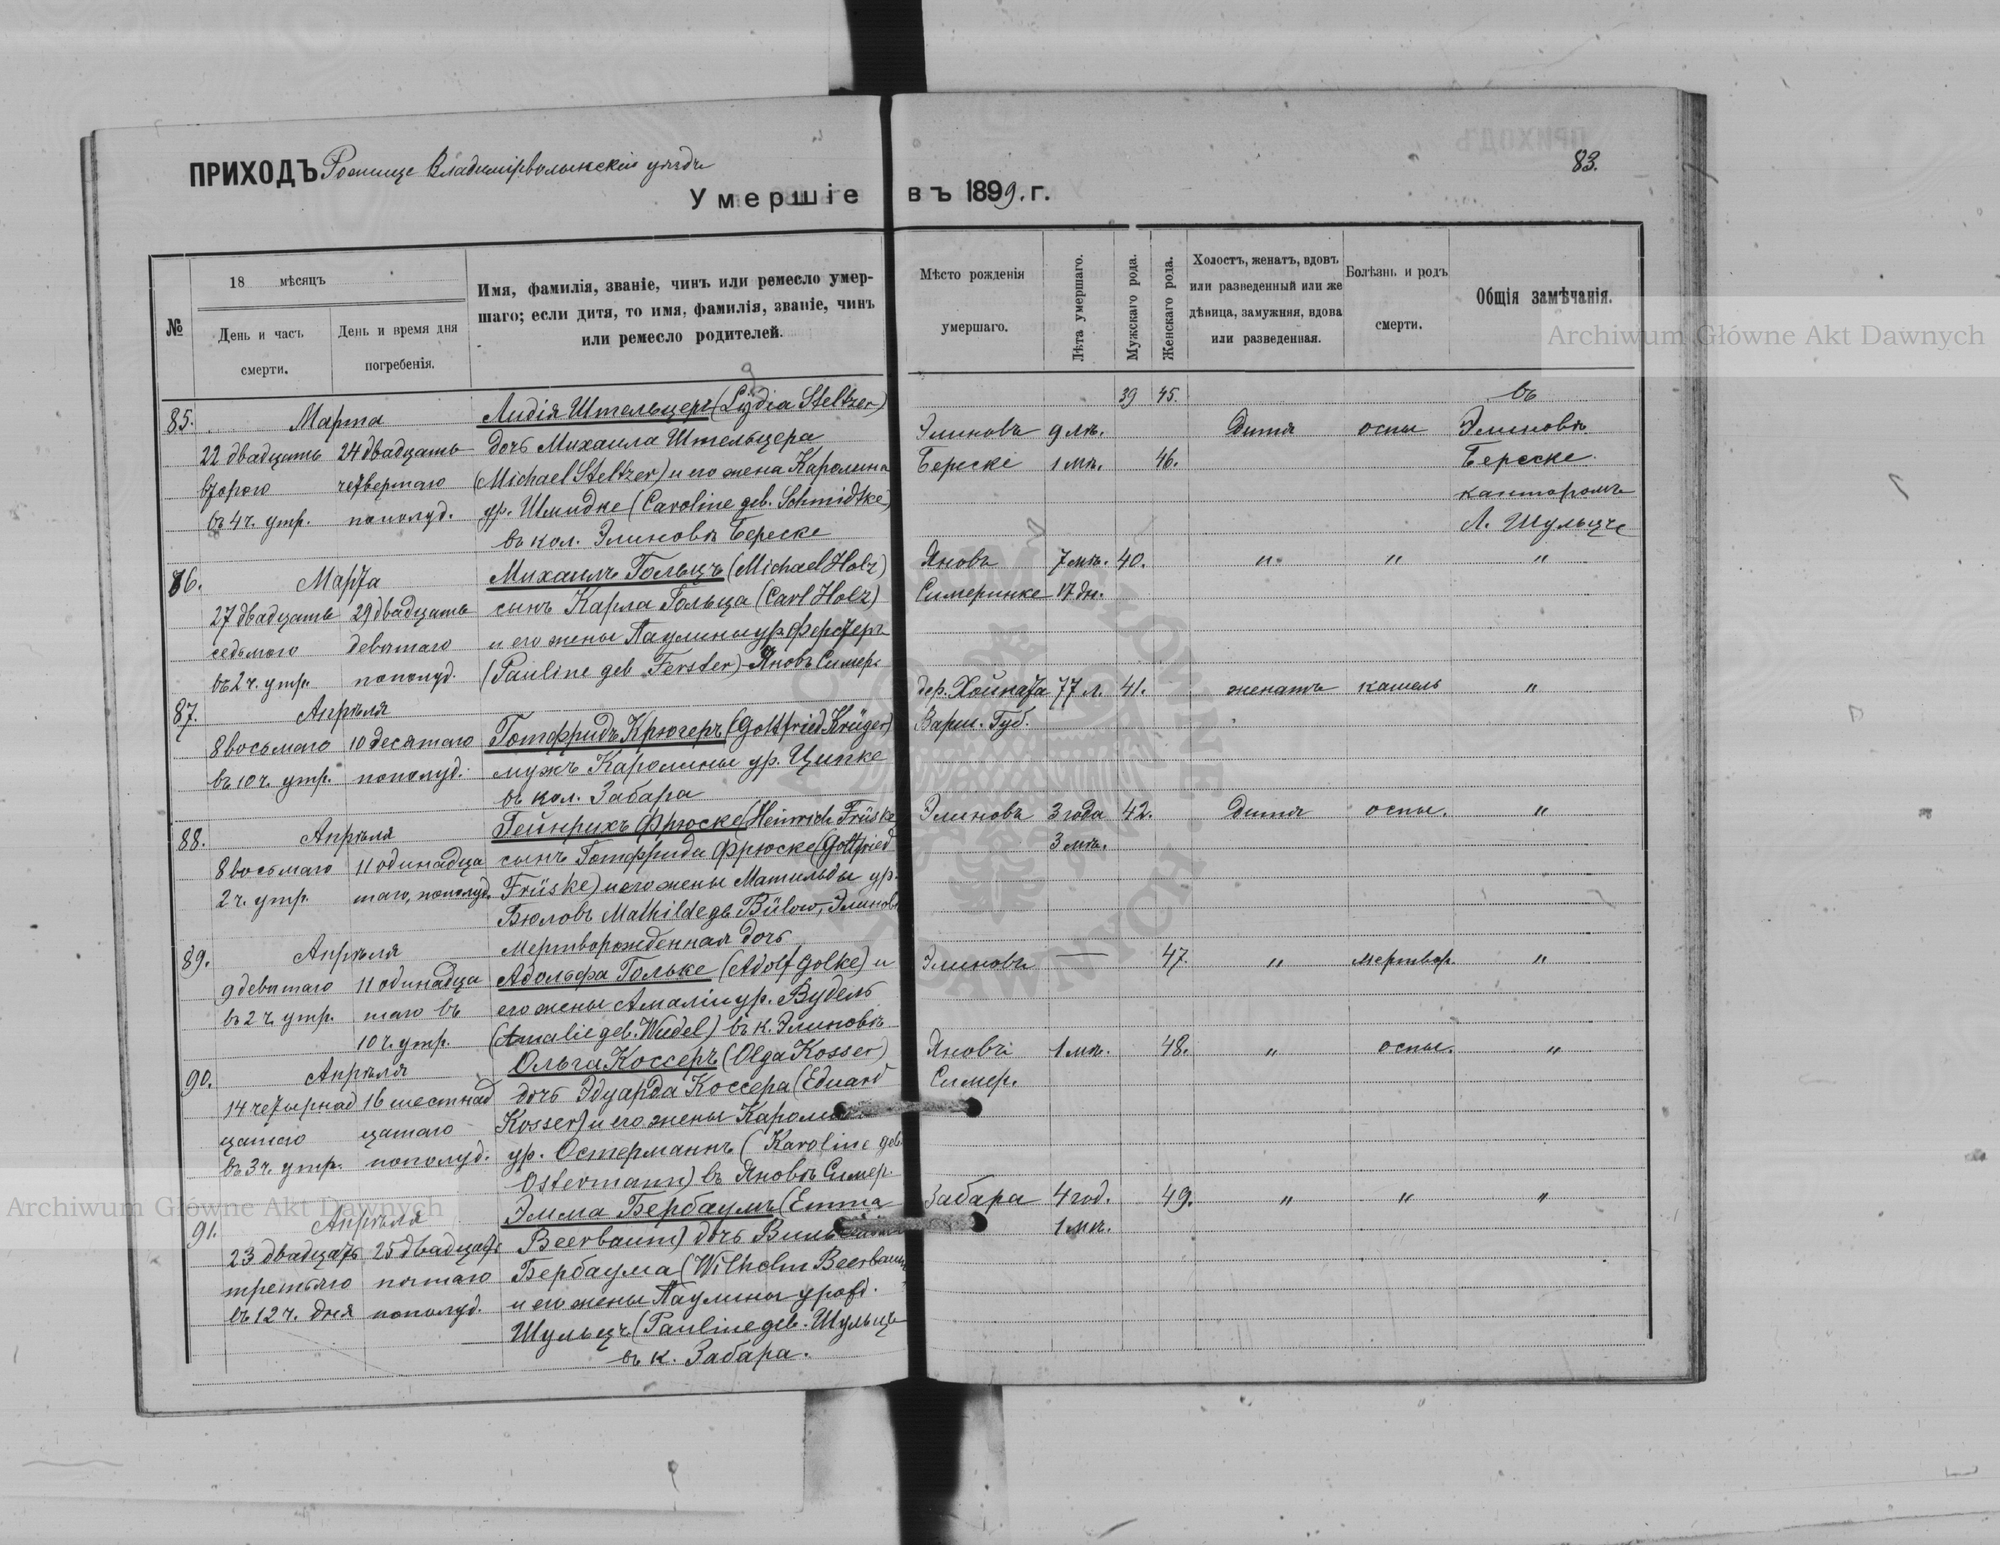 ПРИХОДЪ Рожище Владимірволынскій уѣздъ
83.
Умершіе въ 1899. г.
№
18 мѣсяцъ
День и часъ смерти.
День и время дня погребенія.
Имя, фамилія, званіе, чинъ или ремесло умер-
шаго; если дитя, то имя, фамилія, званіе, чинъ
или ремесло родителей.
Мѣсто рожденія умершаго.
Лѣта умершаго.
Мужскаго рода.
Женскаго рода.
Холостъ, женатъ, вдовъ
или разведенный или же
дѣвица, замужняя, вдова
или разведенная.
Болѣзнь и родъ смерти.
Общія замѣчанія.
39 45. въ
85. Марта Лидія Штельцеръ (Lydia Steltzer)
22 двадцать 24 двадцать дочь Михаила Штельцера Элиновъ 9 лѣ. Дитя оспы Элиновкѣ
втораго четвертаго (Michael Steltzer) и его жена Каролина Береске 1 мѣ. 46. Береске
въ 4 ч. утр. пополуд. ур. Шмидке (Caroline geb. Schmidtke) канторомъ
въ кол. Элиновкѣ Береске Л. Шульцъ
86. Марта Михаилъ Гольцъ (Michael Holz) Яновъ 7 мѣ. 40. " " "
27 двадцать 29 двадцать сынъ Карла Гольца (Carl Holz) Симеринке 17 дн.
седьмаго девятаго и его жены Паулины ур. Ферстеръ
въ 2 ч. утр. пополуд. (Pauline geb Ferster) Яновъ Симер.
87. Апрѣля дер. Хойната 77 л. 41. женатъ кашель "
8 восьмаго 10 десятаго Готфридъ Крюгеръ (Gottfried Krüger) Варш. Губ.
въ 10 ч. утр. пополуд. мужъ Каролины ур. Ципке
въ кол. Забара
88. Апрѣля Гейнрихъ Фрюске (Heinrich Früske Элиновъ 3 года 42. Дитя оспы. "
8 восьмаго 11 одинадца сынъ Готфрида Фрюске (Gottfried 3 мѣ.
2 ч. утр. таго, пополуд. Früske) и его жены Матильды ур.
Бюловъ Mathilde gb Bülow, Элиновъ
89. Апрѣля Мертворожденная дочь
9 девятаго 11 одинадца Адольфа Гольке (Adolf Golke) и Элиновъ — 47. " мертвор. "
въ 2 ч. утр. таго въ его жены Амаліи ур. Вудель
10 ч. утр. (Amalie geb. Wudel) въ к. Элиновкѣ
90. Апрѣля Ольга Коссеръ (Olga Kosser) Яновъ 1 мѣ. 48. " оспы. "
14 четырнад 16 шестнад дочь Эдуарда Коссера (Eduard Симер.
цатаго цатаго Kosser) и его жены
въ 3 ч. утр. пополуд. ур. Остерманнъ (Karoline geb.
Ostermann) въ Яновкѣ Симер.
91. Апрѣля Эмма Бербаумъ (Emma Забара 4 год. 49. " " "
23 двадцать 25 двадцать Beerbaum) дочь 1 мѣ.
третьяго пятаго Бербаума (Wilhelm Beerbaum
въ 12 ч. дня пополуд. и его жены Паулины урожд.
Шульцъ (Pauline geb. Шульцъ
въ к. Забара.
Archiwum Główne Akt Dawnych
Archiwum Główne Akt Dawnych